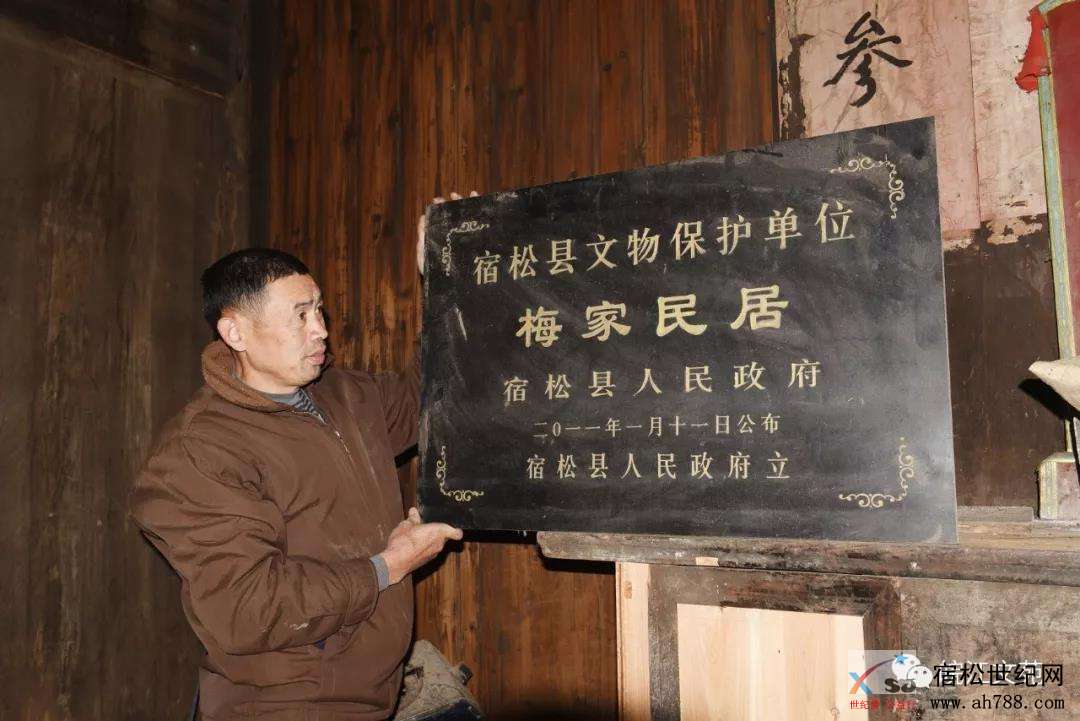 参
宿松县文物保护单位
梅家民居
宿松县人民政府
二〇一一年一月十一日公布
宿松县人民政府立
宿松世纪网
www.ah788.com